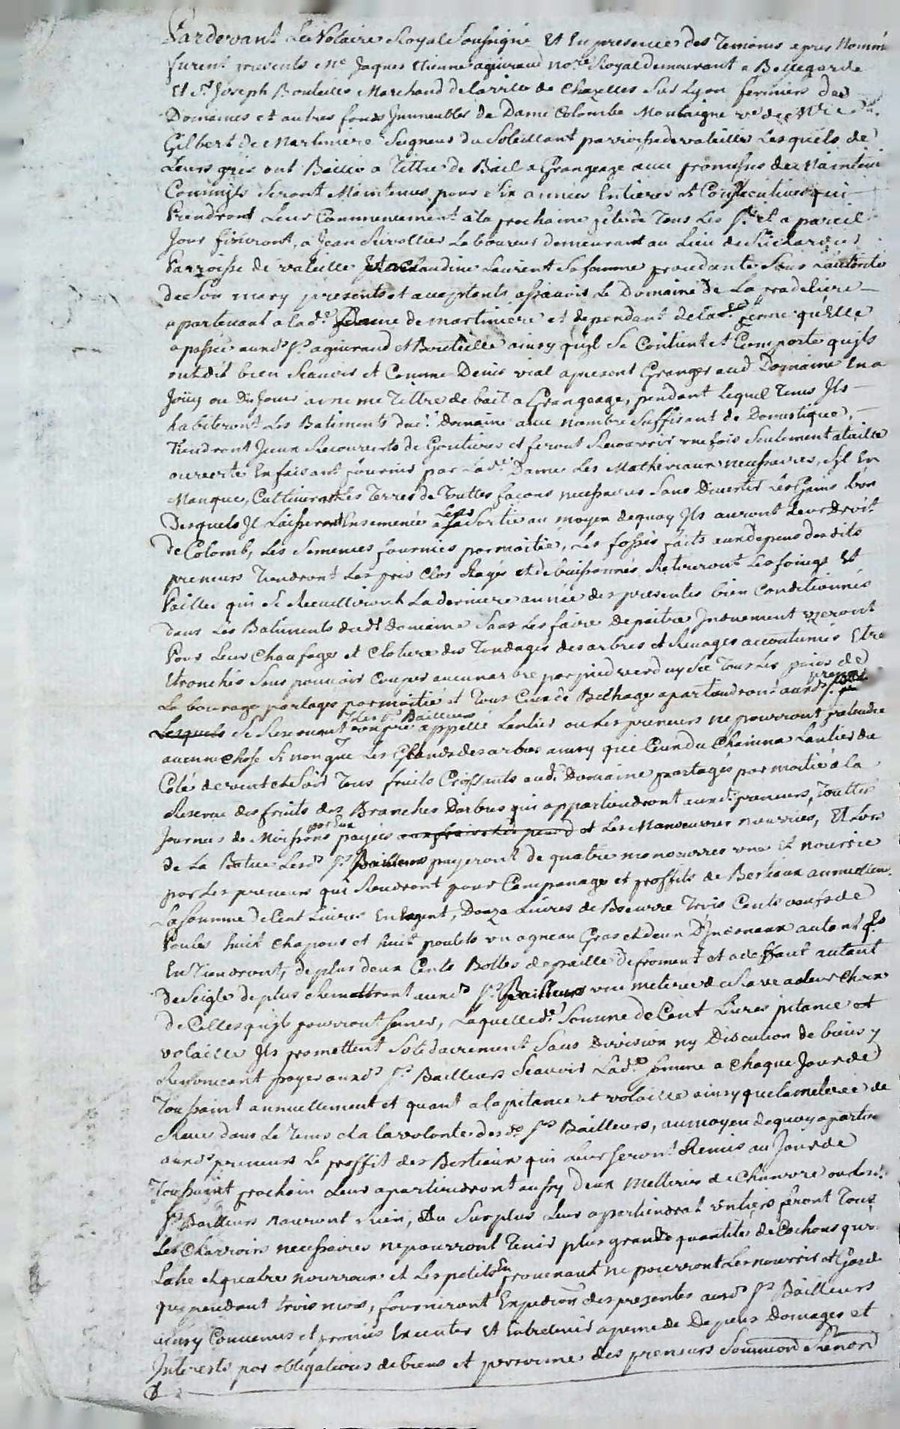 Pardevant Le Notaire Royal Soussigné Et En presence des Temoins apres Nommé
furent presents Me Jaques Etienne agniraud nore Royal demeurant a Bellegarde
Et Sr Joseph Bouteille Marchand de la ville de Chazelles Sur Lyon fermier des
Domaines et autres fonds Immeubles de Dame Colombe Montaigne ve de
Gilbert de Martiniere Seigneur du Soleillant parroisse de valeille Lesquels de
Leurs grés ont Baillé a Titre de Bail a Grangeage avec promesses de Maintenir
Commils Seront Maintenus pour Six années Entieres et Consecutives qui
Prendront Leur Commencement a la prochaine fete de Tous Les Sts et a pareil
Jour finiront, a Jean Laboureur demeurant au Lieu de
Parroisse de valeille Et a Claudine Laurent Sa femme procedante Sous L'autorité
de Son mary presents et acceptants, assavoir Le Domaine de La pradeliere
apartenant a lade Dame de Martiniere et dependant de lade ferme qu'Elle
a passée auxds Srs agniraud et Bouteille ainsy qu'il Se Contient et Comporte qu'ils
ont dit bien Scavoir et Comme Denis vial apresent Granger aud Domaine En a
Joüy ou Du Jouir au meme Tittre de bail a Grangeage, pendant lequel Tems Ils
habiteront Les Batiments dud. Domaine avec nombre Suffisant de Domestique,
Tiendront Iceux Recouverts de Goutieres et feront Recouvrir une fois Seulement a taille
ouverte En faisant fournir par Lade Dame Les Matheriaux necessaires, Sil En
Manque, Cultiveront Les Terres de Toutes façons necessaires Sans Divertir Les Gains bon
Desquels Il Laisseront Ensemencée Les a Sa Sortie au moyen dequoy Ils auront Leur droit
de Colomb, Les Semences fournies par moitié, Les fossés faits aux depens desdits
preneurs Tiendront Les prés Clos Rayés et de buissonnés Retireront Les foings Et
Pailles qui Se Recueilliront La derniere année des presentes bien Conditionnés
dans Les Batiments dudt domaine Sans Les faire depaitre Induement useront
Pour Leur Chaufage et Cloture des Tondages des arbres et Rivages accoutumés Etre
Etronchés Sans pouvoir Couper aucun arbre par pied verd ny Sec Tous Les
Le bourage partagé par moitié et Tous Cura de Bechage apartiendront auxds preneurs
Lesquels Se Reservant Les Srs Bailleurs le pré appellé Lantier ou Les preneurs ne pourront pretendre
aucune Chose Si non que Les Glands des arbres ainsy que Ceux du Chemin Lantier du
Coté de vent et de Soir Tous fruits Croissants aud. Domaine partagés par moitié a la
Reserve des fruits des Branches Darbres qui appartiendront auxd. preneurs, Toutes
Journées de Moissons payées par Eux et Les Manoeuvres nourries, Et Lors
de La Batue Lesds Srs Bailleurs payeront de quatre manoeuvres une Et nourrie
par Les preneurs qui Rendront pour Companage et proffits de Bestiaux annuellement
La Somme de Cent Livres En argent, Douze Livres de Beurre Trois Cents oeufs de
Poules huit Chapons et huit poulets un agneau Gras et deux D'Inesneaux autant qu'ils
En Tiendront, de plus deux Cents Bottes de paille de froment et a deffaut autant
de Seigle de plus Remettront auxds Srs Bailleurs une meterée de Rave a leur Choix
de Celles qu'ils pourront Semer, Laquelle de Somme de Cent Livres pitance et
volaille Ils promettent Solidairement Sans Division ny Discution de biens y
Renoncant payer auxds Srs Bailleurs Scavoir Lade Somme a Chaque Jour de
Toussaint annuellement et quant a la pitance et volaille ainsy que la meterée de
Rave dans Le Tems et a la volonté desds Srs Bailleurs, au moyen dequoy apartien
auxds preneurs Le proffit des Bestiaux qui Leur Seront Remis au Jour de
Toussaint prochain Leur apartiendront aussy Deux Metterées de Chanvre ou Lesd.
Srs Bailleurs n'auront Rien, Du Surplus Leur apartiendra Entiers feront Tous
Les Charrois necessaires ne pourront Tenir plus grande quantité de Cochons qu'une
Lahe et quatre nourrains et Les petits En Provenant ne pourront Les nourrir et Garder
que pendant trois mois, fourniront Expedion des presentes auxds Srs Bailleurs
ainsy Convenus et promis Executer Et Entretenir a peine de Depens Domages et
Interests par obligations de biens et personne des preneurs Soumission Renon